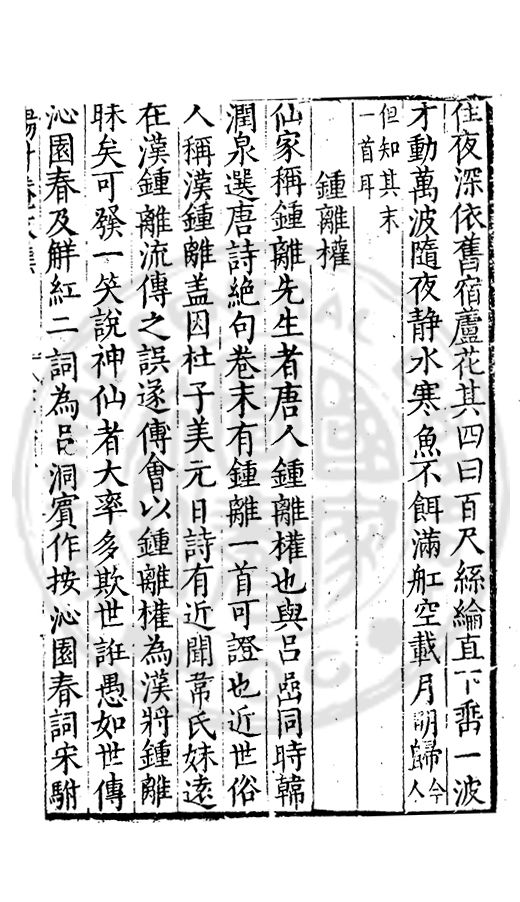 住夜深依舊宿蘆花其四曰百尺絲綸直下垂一波
才動萬波隨夜静水寒魚不餌滿舡空載月明歸今人
但知其末一首耳
鍾離權
仙家稱鍾離先生者唐人鍾離權也與吕嵒同時韓
澗泉選唐詩絶句卷末有鍾離一首可證也近世俗
人稱漢鍾離盖因杜子美元日詩有近聞韋氏妹逺
在漢鍾離流傳之誤遂傅會以鍾離權為漢將鍾離
昧矣可發一笑說神仙者大率多欺世誑愚如世傳
沁園春及觧紅二詞為吕洞賓作按沁園春詞宋駙